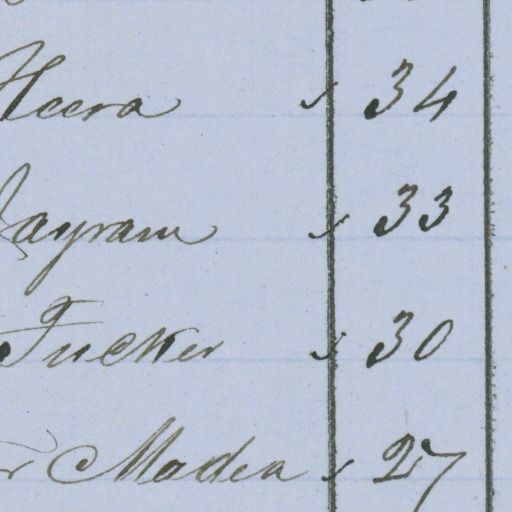 Heera 34
Jayram 33
Tucker 30
Madea 27